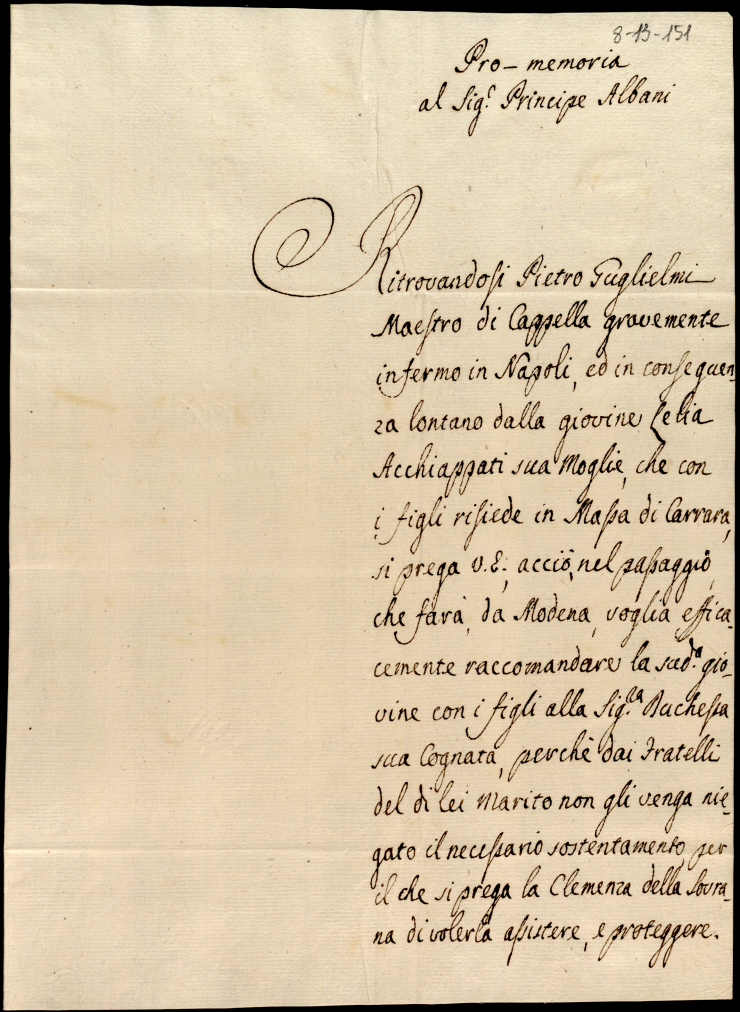 8-13-151
Pro-memoria
al Sig.r Principe Albani
Ritrovandosi Pietro Guglielmi
Maestro di Cappella gravemente
infermo in Napoli, ed in conseguen-
za lontano dalla giovine Lelia
Acchiappati sua Moglie, che con
i figli risiede in Massa di Carrara,
si prega V.E., acciò, nel passaggio,
che farà, da Modena, voglia effica-
cemente raccomandare la sud.a gio-
vine con i figli alla Sig.ra Duchessa
sua Cognata, perchè dai Fratelli
del di lei Marito non gli venga nie-
gato il necessario sostentamento, per
il che si prega la Clemenza della Sovra-
na di volerla assistere, e proteggere.